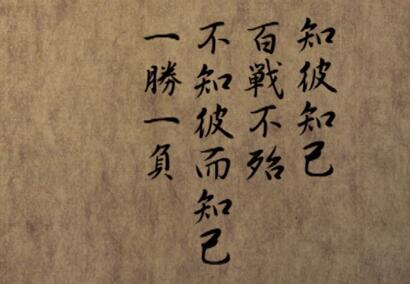 知彼知己
百戦不殆
不知彼而知己
一勝一負